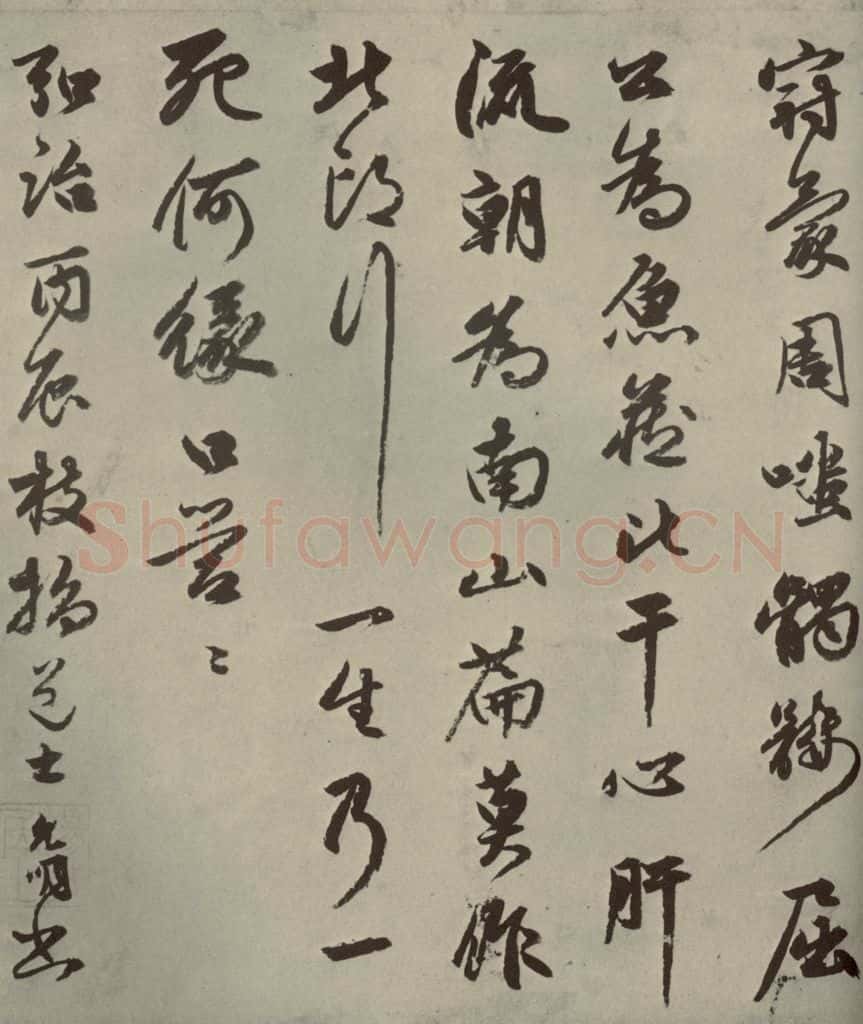 蒙周嗤髑髏屈
公為魚葬比干心肝
流朝為南山篇莫作
北邙行一生乃一
死何緣口營〻
弘治丙辰枝指道士允明書
Shufawang.CN